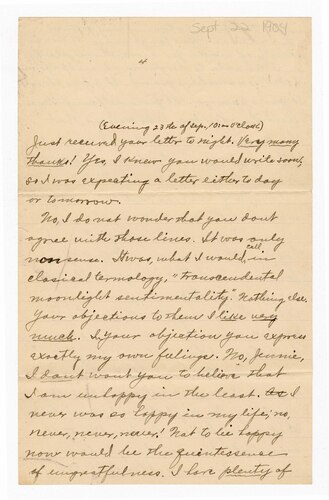 Sept 22 1904
4
(Evening 23th of sep. 10:00 o'clock)
Just received your letter to night. Very many
thanks! Yes, I knew you would write soon,
so I was expecting a letter either to day
or tomorrow.
No, I do not wonder that you dont
agree with those lines. It was only
nonsense. It was, what I would call, in
classical termology, "transcendental
moonlight sentimentality." Nothing else.
Your objections to them I like very
much. I your objection you express
exactly my own feelings. No, Jennie,
I dont want you to believe that
I am unhappy in the least. I
never was so happy in my life; no,
never, never, never! Not to be happy
now would be the quintessence
of ungratefulness. I have plenty of